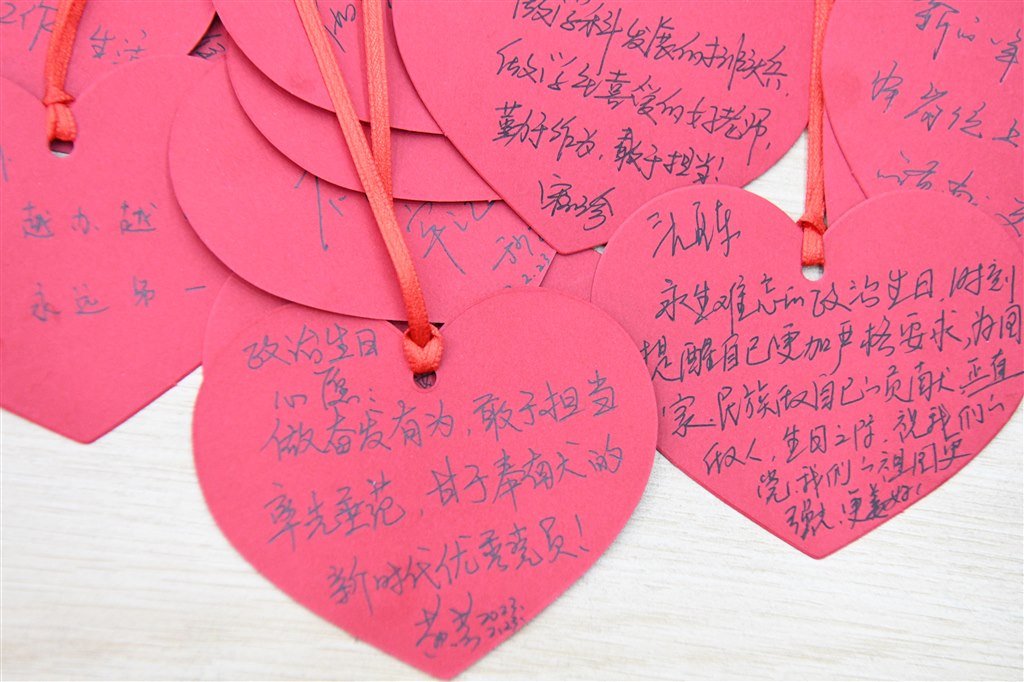 工作 生活
越办越
永远第一
做学科发展的排头兵
做学生喜爱的好老师,
勤于作为,敢于担当!
新的一年
本岗位上
政治生日
心愿:
做奋发有为,敢于担当
率先垂范,甘于奉献大的
新时代优秀党员!
2023.
2.23.
永生难忘的政治生日,时刻
提醒自己更加严格要求,为国
家、民族做自己的贡献,正直
做人,生日之际,祝我们的
党,我们的祖国更
强大,更美好!